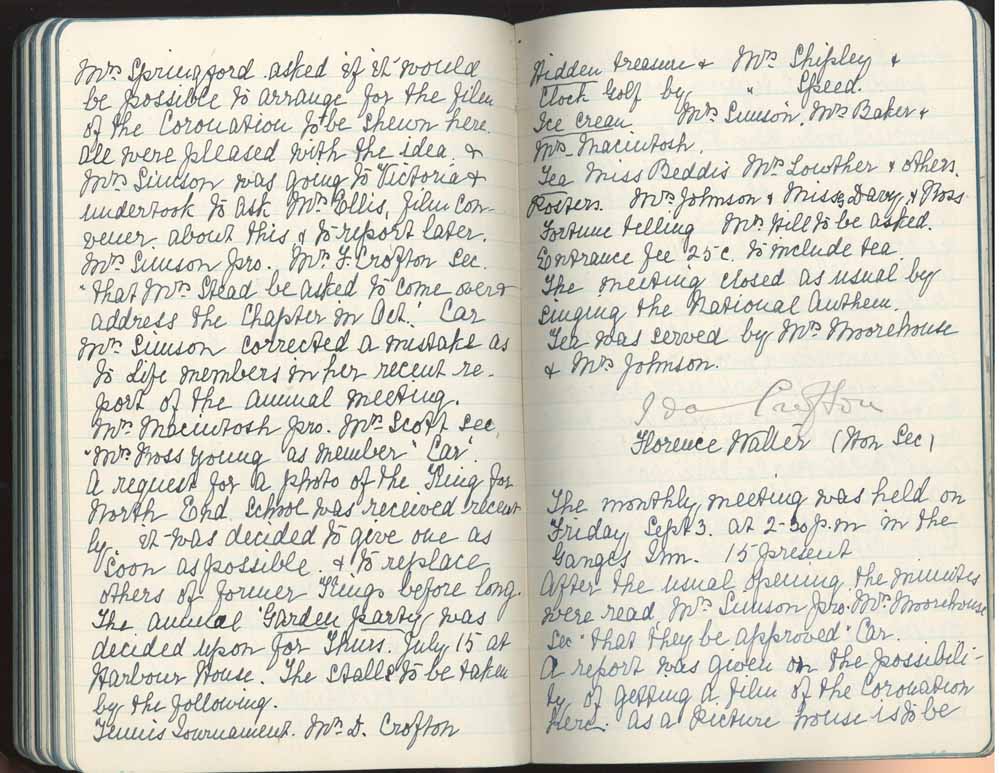 Mrs. Springford asked if it would
be possible to arrange for the film
of the Coronation to be shewn here.
All were pleased with the idea, &
Mrs Simson was going to Victoria &
undertook to ask Mrs Ellis, film con-
vener, about this & to report later.
Mrs Simson pro. Mrs F. Crofton Sec.
"that Mrs Stead be asked to come over &
address the Chapter in Oct." Car
Mrs Simson corrected a mistake as
to Life members in her recent re-
port of the annual meeting.
Mrs Macintosh pro. Mrs Scott Sec,
"Mrs Ross Young as member" Car.
A request for a photo of the King for
North End School was received recent
ly. it was decided to give one as
soon as possible. & to replace
others of former Kings before long.
The annual Garden Party was
decided upon for Thurs. July 15 at
Harbour House. The stalls to be taken
by the following.
Tennis Tournament. Mrs D. Crofton
Hidden treasure & Mrs Shipley &
Clock Golf by " Speed.
Ice Cream Mrs Simson, Mrs Baker &
Mrs Macintosh.
Tea Miss Beddis Mrs Lowther & others.
Posters. Mrs Johnson & Misses Davy, & Ross.
Fortune telling Mrs Hill to be asked.
Entrance fee 25c. to include tea.
The meeting closed as usual by
singing the National Anthem.
Tea was served by Mrs Moorehouse
& Mrs Johnson.
Ida Crofton
Florence Walter (Hon Sec)
The monthly meeting was held on
Friday Sept 3. at 2-30 p.m in the
Ganges Inn. 15 present
After the usual opening, the minutes
were read, Mrs Simson pro. Mrs Moorehouse
Sec "that they be approved" Car.
A report was given on the possibili-
ty of getting a film of the Coronation
here. as a Picture house is to be